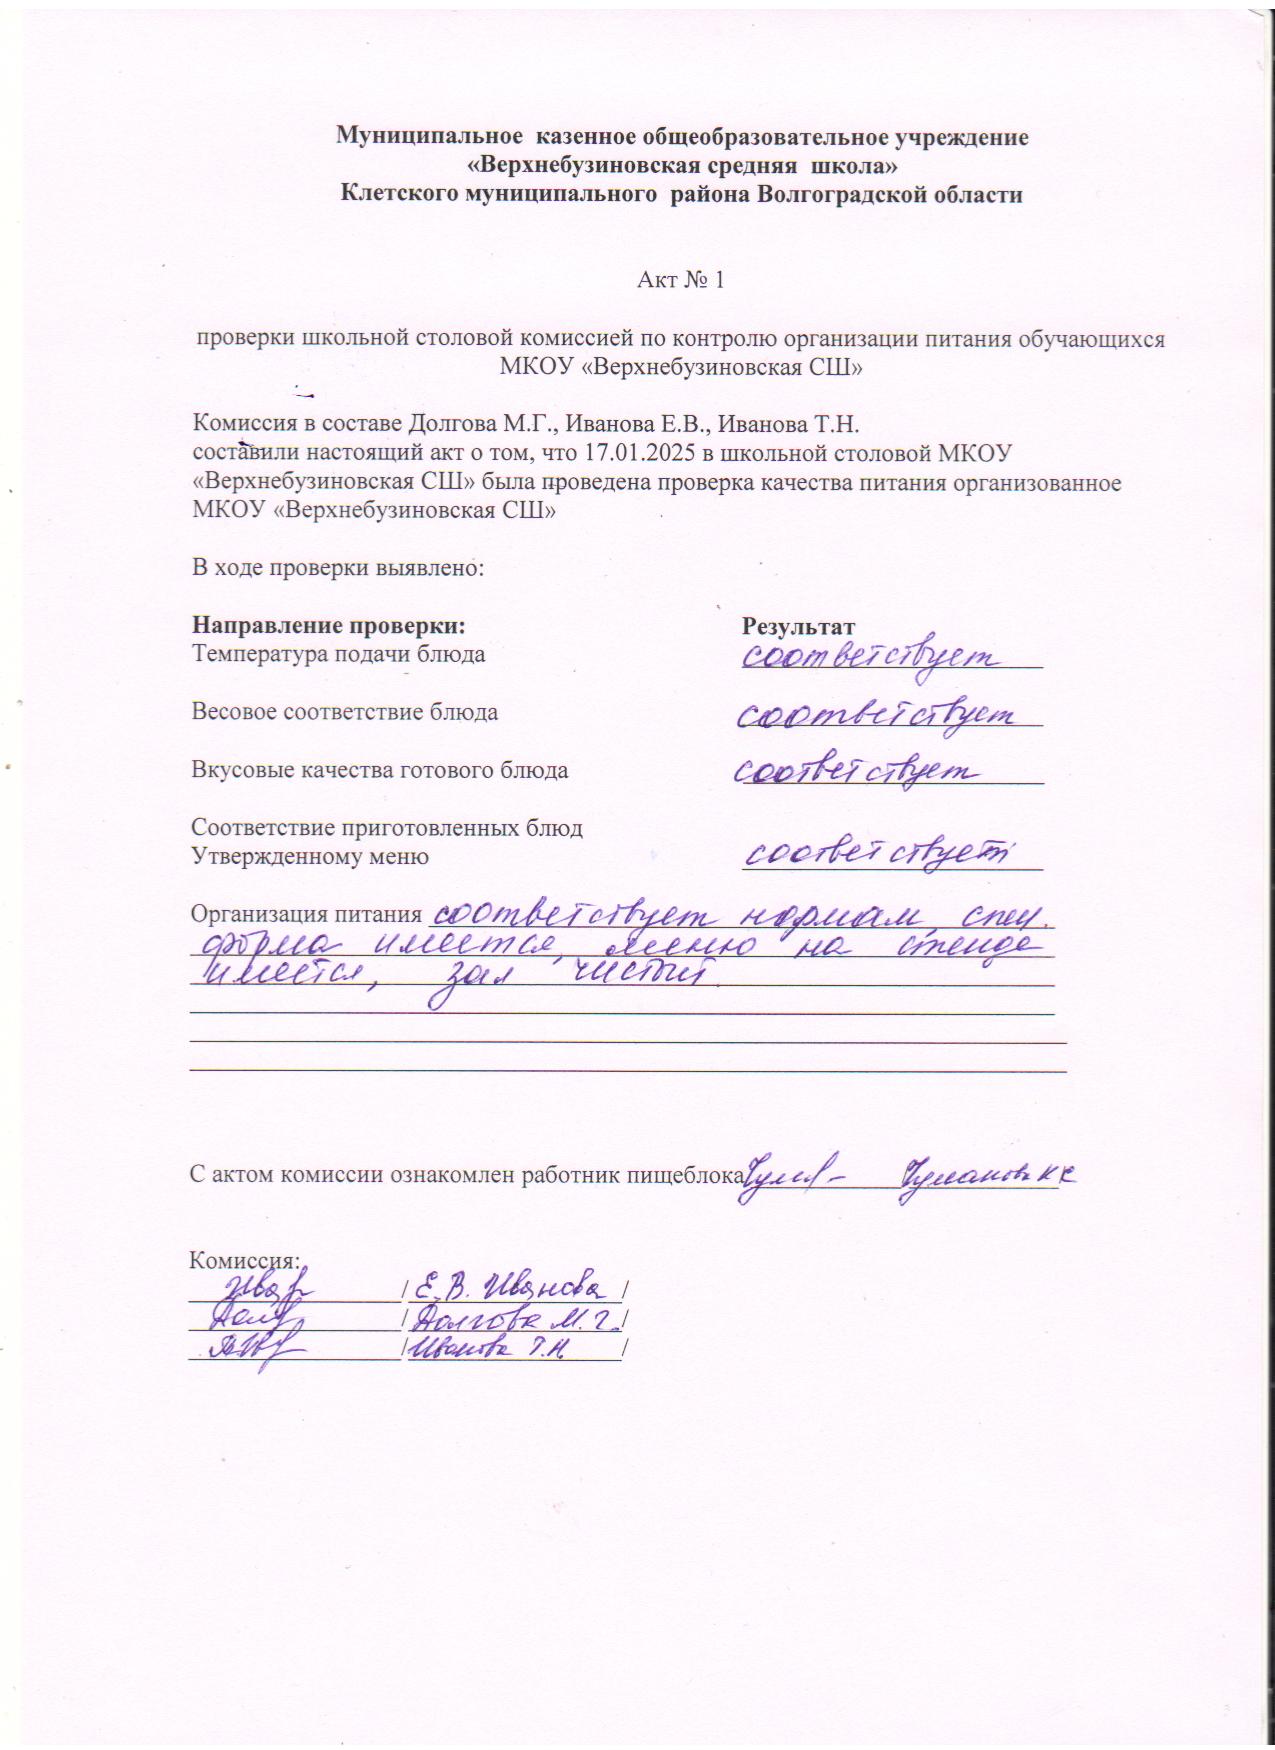 Муниципальное казенное общеобразовательное учреждение
«Верхнебузиновская средняя школа»
Клетского муниципального района Волгоградской области
Акт № 1
проверки школьной столовой комиссией по контролю организации питания обучающихся
МКОУ «Верхнебузиновская СШ»
Комиссия в составе Долгова М.Г., Иванова Е.В., Иванова Т.Н.
составили настоящий акт о том, что 17.01.2025 в школьной столовой МКОУ
«Верхнебузиновская СШ» была проведена проверка качества питания организованное
МКОУ «Верхнебузиновская СШ»
В ходе проверки выявлено:
Направление проверки: Результат
Температура подачи блюда соответствует
Весовое соответствие блюда соответствует
Вкусовые качества готового блюда соответствует
Соответствие приготовленных блюд
Утвержденному меню соответствует
Организация питания соответствует нормам, спец.
форма имеется, меню на стенде
имеется, зал чистый.
С актом комиссии ознакомлен работник пищеблока
Комиссия:
/ Е.В. Иванова /
/ Долгова М.Г. /
/ Иванова Т.Н /